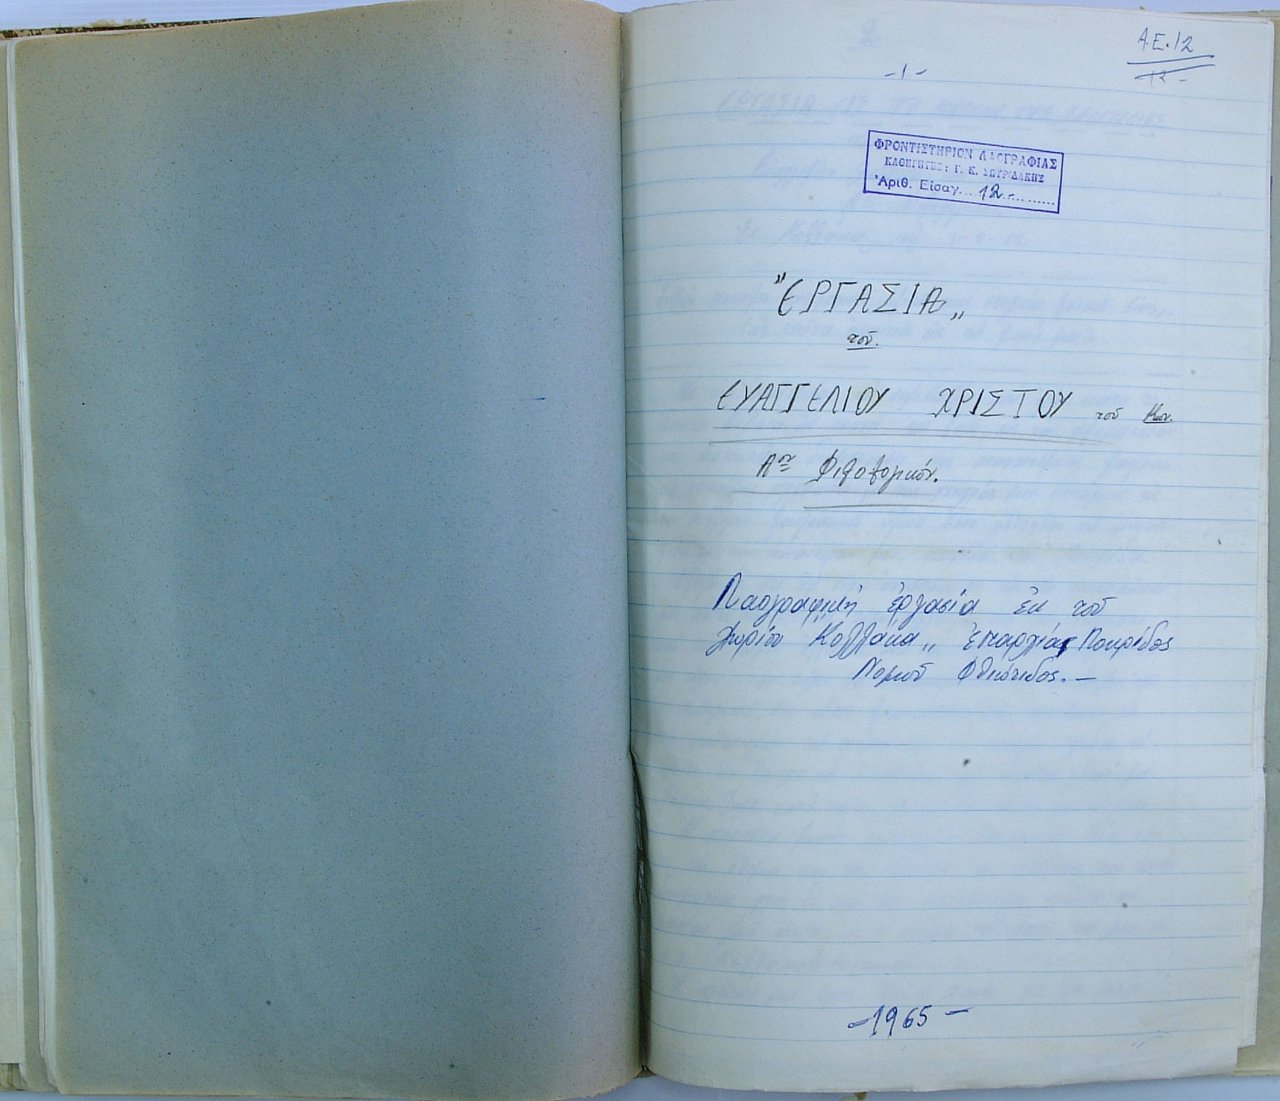 Α.Ε.12
12-
-1-
ΦΡΟΝΤΙΣΤΗΡΙΟΝ ΛΑΟΓΡΑΦΙΑΣ
ΚΑΘΗΓΗΤΗΣ: Γ. Κ. ΣΠΥΡΙΔΑΚΗΣ
Ἀριθ. Εἰσαγ... 12...
"ΕΡΓΑΣΙΑ„
τοῦ
ΕΥΑΓΓΕΛΙΟΥ ΧΡΙΣΤΟΥ τοῦ Κων.
Λαογραφική ἐργασία ἐκ τοῦ
χωρίου Κολλάκα„ ἐπαρχίας Λοκρίδος
Νομοῦ Φθιώτιδος.-
-1965-